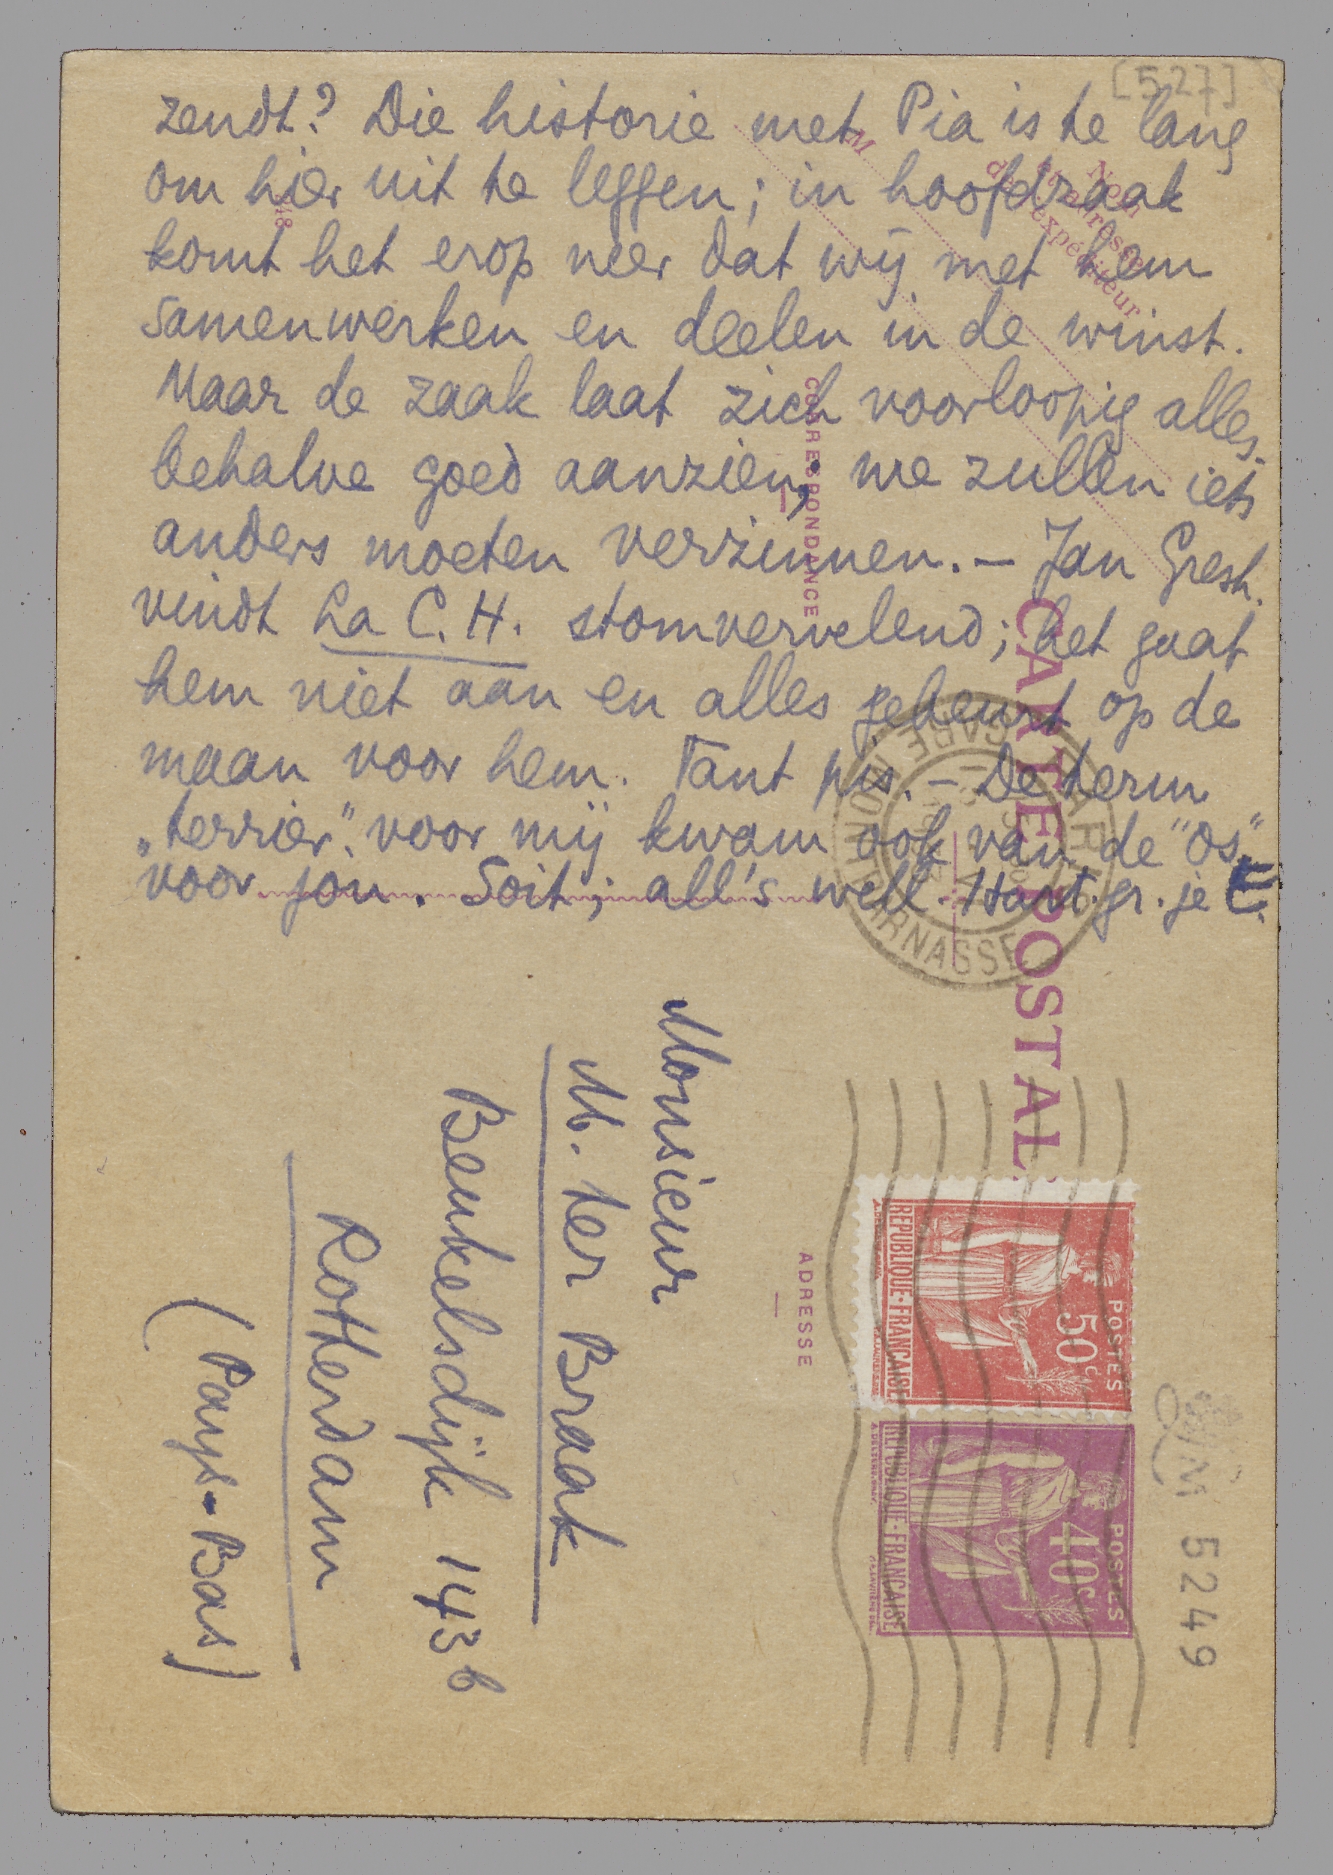 [527]
zendt? Die historie met Pia is te lang
om hier uit te leggen; in hoofdzaak
komt het erop neer dat wij met hem
samenwerken en deelen in de winst.
Maar de zaak laat zich voorloopig alles
behalve goed aanzien, we zullen iets
anders moeten verzinnen. — Jan Gresh.
vindt La C. H. stomvervelend; het gaat
hem niet aan en alles gebeurt op de
maan voor hem. Tant pis. — De term
„terrier” voor mij kwam ook van de "os"
voor jou. Soit; all's well. Hart. gr. je E.
Nom
et adresse
de l'expéditeur
M
CORRESPONDANCE
CARTE POSTALE
PARIS
GARE MONTPARNASSE
ADRESSE
Monsieur
M. ter Braak
Beukelsdijk 143b
Rotterdam
(Pays-Bas)
POSTES
50c
REPUBLIQUE-FRANÇAISE
POSTES
40c
REPUBLIQUE-FRANÇAISE
LM 5249